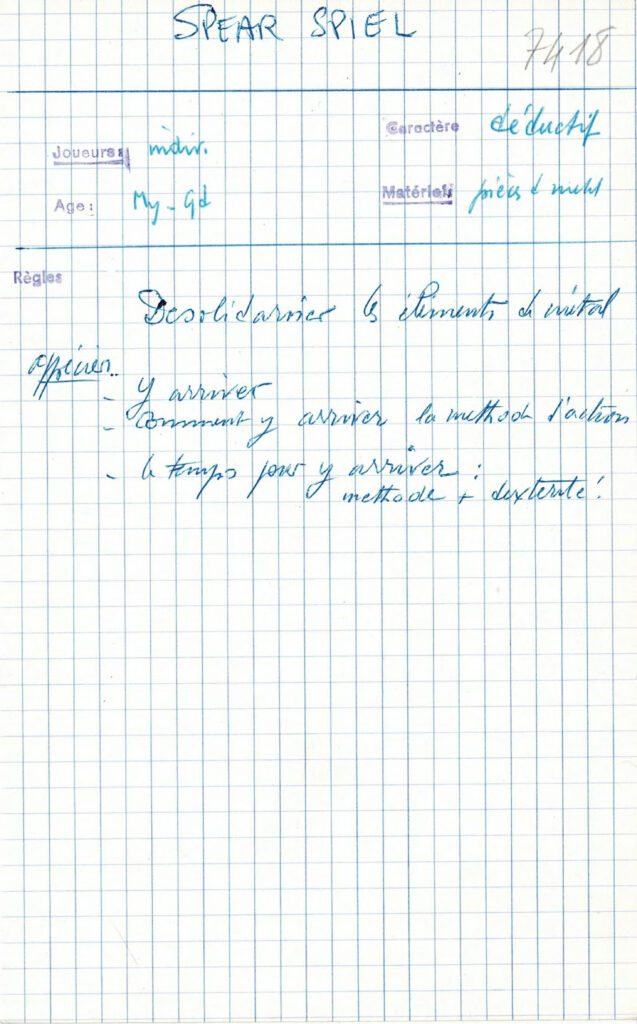 SPEAR SPIEL
7418
Joueurs: indiv.
Caractère déductif
Age: My - Gd
Matériel: pièces d métal
Règles
Desolidariser les éléments de métal
apprécier..
- y arriver
- comment y arriver la methode d'action
- le temps pour y arriver :
methode + dexterité !